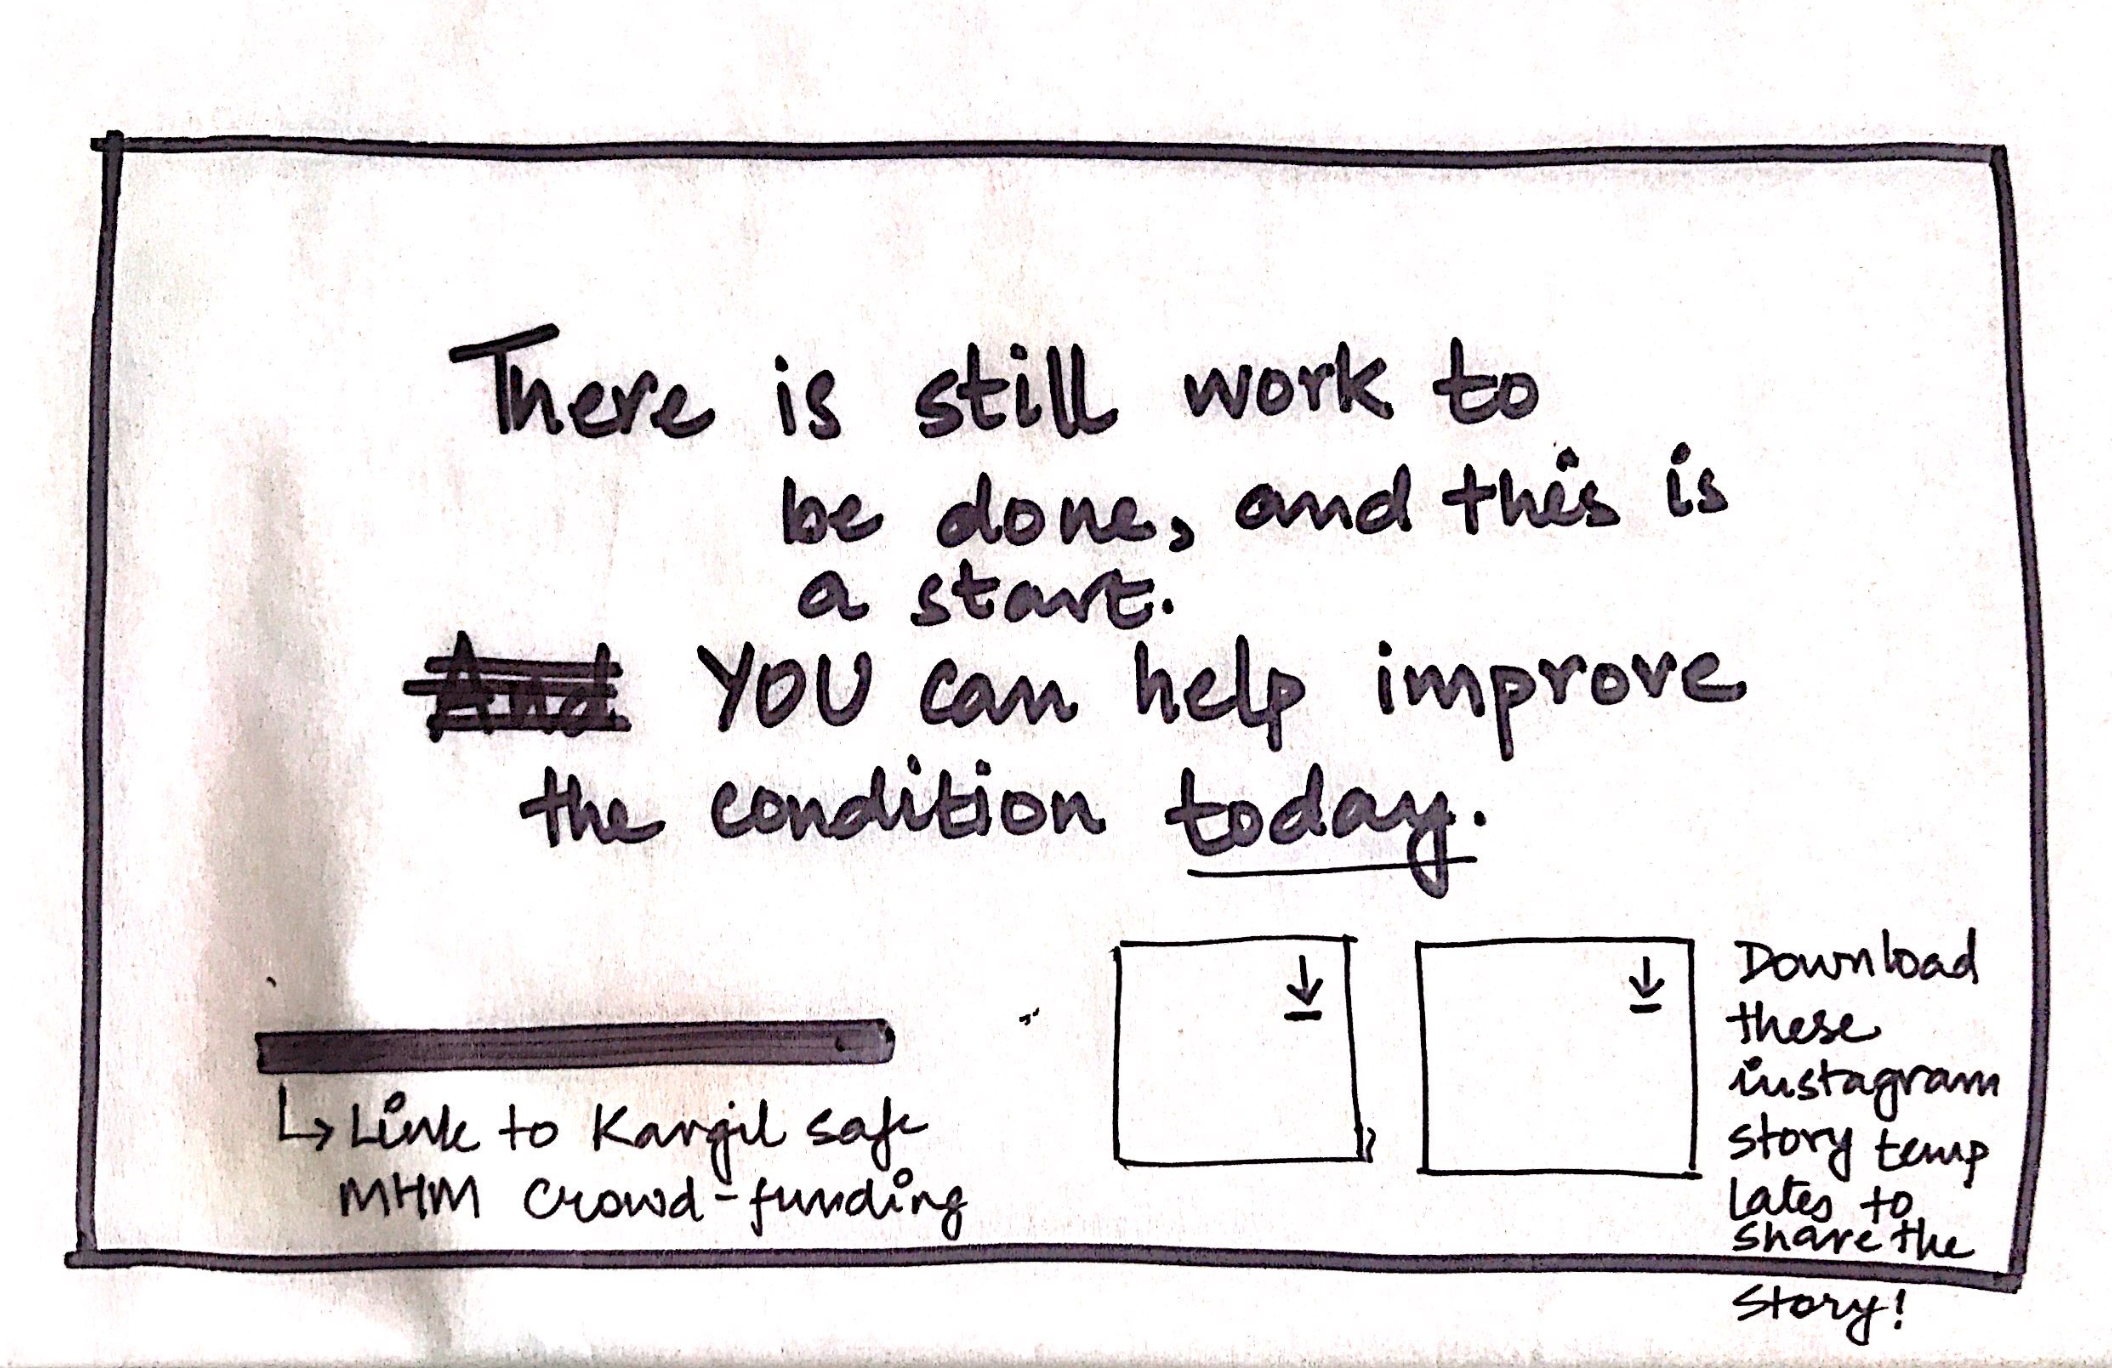 There is still work to
be done, and this is
a start.
And YOU can help improve
the condition today.
Link to Kargil safe
MHM crowd-funding
Download
these
instagram
story temp
lates to
share the
story!